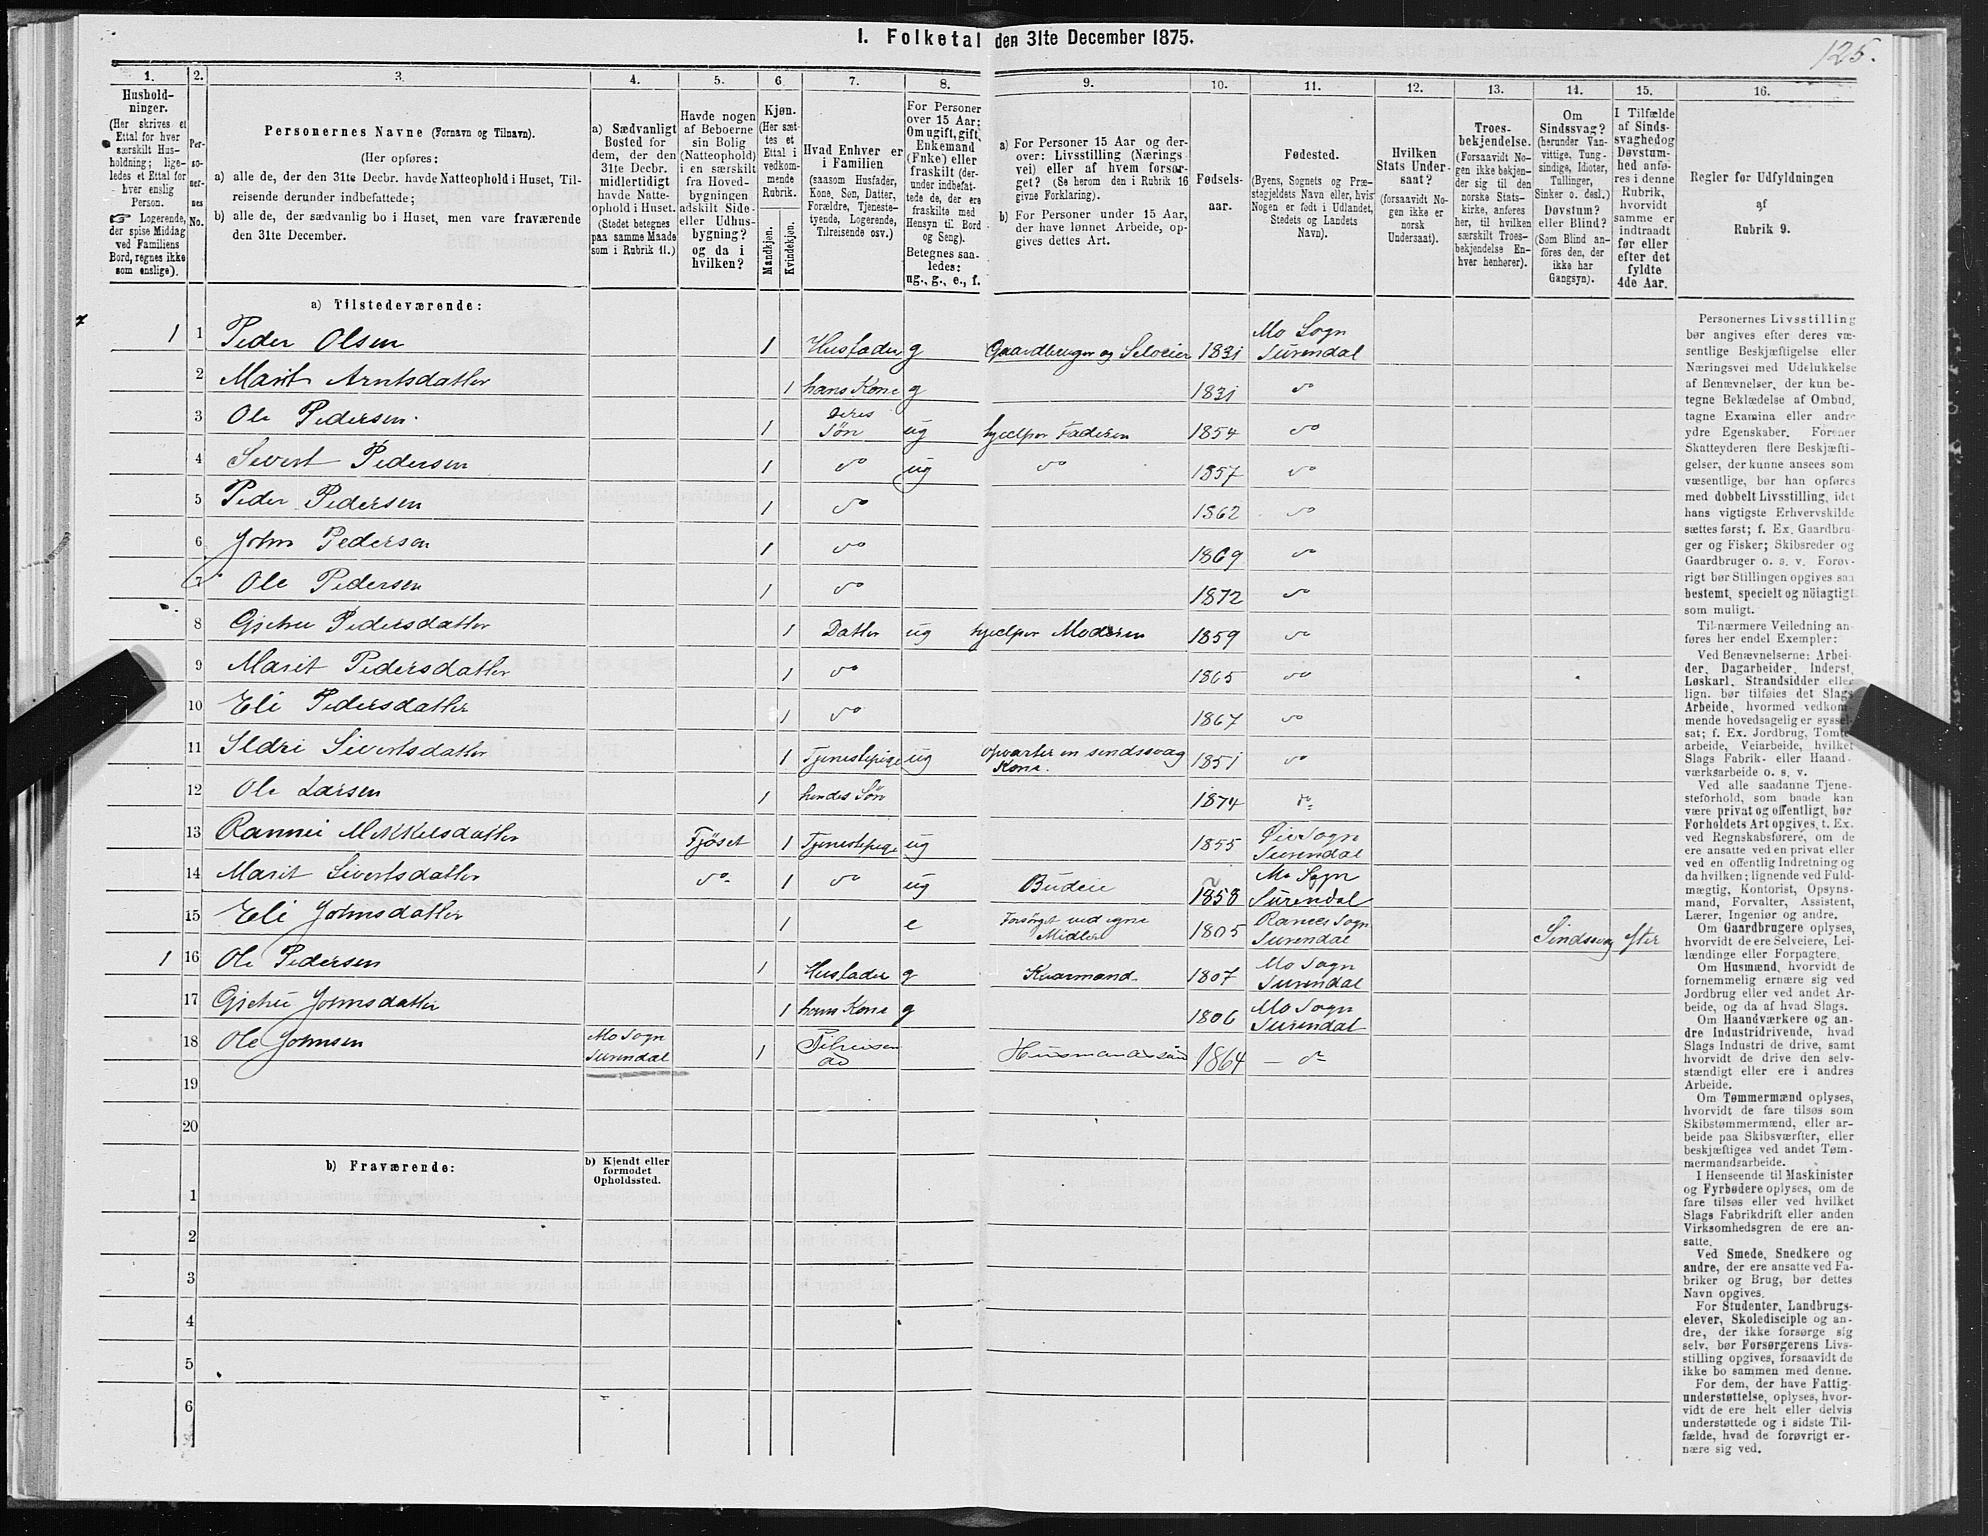 I. Folketal den 31te December 1875.
125.
1.
2.
3.
4.
5.
6
7.
8.
9.
10.
11.
12.
13.
14.
15.
16.
Hushold-
ninger.
(Her skrives et
Ettal for hver
særskilt Hus-
holdning; lige-
ledes et Ettal for
hver enslig
Person.
☞ Logerende,
der spise Middag
ved Familiens
Bord, regnes ikke
som enslige).
Per-
so-
ner-
nes
No.
Personernes Navne (Fornavn og Tilnavn).
(Her opføres:
a) alle de, der den 31te Decbr. havde Natteophold i Huset, Til-
reisende derunder indbefattede;
b) alle de, der sædvanlig bo i Huset, men vare fraværende
den 31te December.
a) Sædvanligt
Bosted for
dem, der den
31te Decbr.
midlertidigt
havde Natte-
ophold i Huset.
(Stedet betegnes
paa samme Maade
som i Rubrik 11.)
Havde nogen
af Beboerne
sin Bolig
(Natteophold)
i en særskilt
fra Hoved-
bygningen
adskilt Side-
eller Udhus-
bygning?
og da i
hvilken?
Kjøn.
(Her sæt-
tes et
Ettal i
vedkom-
mende
Rubrik.
Mandkjøn.
Kvindekjøn.
Hvad Enhver er
i Familien
(saasom Husfader,
Kone, Søn, Datter,
Forældre, Tjeneste-
tyende, Logerende,
Tilreisende osv.)
For Personer
over 15 Aar:
Om ugift, gift,
Enkemand
(Enke) eller
fraskilt (der-
under indbefat-
tede de, der ere
fraskilte med
Hensyn til Bord
og Seng).
Betegnes saa-
ledes:
ug., g., e., f.
a) For Personer 15 Aar og der-
over: Livsstilling (Nærings
vei) eller af hvem forsør-
get? (Se herom den i Rubrik 16
givne Forklaring).
b) For Personer under 15 Aar,
der have lønnet Arbeide, op-
gives dettes Art.
Fødsels-
aar.
Fødested.
(Byens, Sognets og Præ-
stegjeldets Navn eller, hvis
Nogen er født i Udlandet,
Stedets og Landets
Navn).
Hvilken
Stats Under-
saat?
(forsaavidt No-
gen ikke er
norsk
Undersaat).
Troes-
bekjendelse.
(Forsaavidt No-
gen ikke bekjen-
der sig til den
norske Stats-
kirke, anføres
her, til hvilken
særskilt Troes-
bekjendelse En-
hver henhører).
Om
Sindssvag?
(herunder Van-
vittige, Tung-
sindige, Idioter,
Tullinger,
Sinker o. desl.)
Døvstum?
eller Blind?
(Som Blind an-
føres den, der
ikke har
Gangsyn).
I Tilfælde
af Sinds-
svaghed og
Døvstum-
hed anfø-
res i denne
Rubrik,
hvorvidt
samme er
indtraadt
før eller
efter det
fyldte
4de Aar.
Regler for Udfyldningen
af
Rubrik 9.
a) Tilstedeværende:
1 1 Peder Olsen 1 Husfader g Gaardbruger og Selveier 1831 Mo Sogn Surendal
2 Marit Arntsdatter 1 hans Kone g 1831 do
3 Ole Pedersen 1 deres Søn ug hjælper Faderen 1854 do
4 Sivert Pedersen 1 do ug do 1857 do
5 Peder Pedersen 1 do 1862 do
6 John Pedersen 1 do 1869 do
7 Ole Pedersen 1 do 1872 do
8 Gjetru Pedersdatter 1 Datter ug hjælper Moderen 1859 do
9 Marit Pedersdatter 1 do 1865 do
10 Eli Pedersdatter 1 do 1867 do
11 Ildri Sivertsdatter 1 Tjenestepige ug opvarter en sindssvag Kone. 1851 do
12 Ole Larsen 1 hendes Søn 1874 do
13 Rannei Mikkelsdatter Fjöset 1 Tjenestepige ug 1855 Øie Sogn Surendal
14 Marit Sivertsdatter do 1 do ug Budeie 1858 Mo Sogn Surendal
15 Eli Johnsdatter 1 e Forsørget ved egne Midler 1805 Ranes Sogn Surendal Sindssvag efter
1 16 Ole Pedersen 1 Husfader g Kaarmand 1807 Mo Sogn Surendal
17 Gjetru Johnsdatter 1 hans Kone g 1806 Mo Sogn Surendal
18 Ole Johnsen Mo Sogn Surendal 1 Husmandssön 1864 — do
19
20
b) Fraværende:
b) Kjendt eller
formodet
Opholdssted.
1
2
3
4
5
6
Personernes Livsstilling
bør angives efter deres væ-
sentlige Beskjæftigelse eller
Næringsvei med Udelukkelse
af Benævnelser, der kun be-
tegne Beklædelse af Ombud,
tagne Examina eller andre
ydre Egenskaber. Forener
Skatteyderen flere Beskjæfti-
gelser, der kunne ansees som
væsentlige, bør han opføres
med dobbelt Livsstilling, idet
hans vigtigste Erhvervskilde
sættes først; f. Ex. Gaardbru-
ger og Fisker; Skibsreder og
Gaardbruger o. s. v. Forøv-
rigt bør Stillingen opgives saa
bestemt, specielt og nöiagtigt
som muligt.
Til nærmere Veiledning an-
føres her endel Exempler:
Ved Benævnelserne: Arbei-
der, Dagarbeider, Inderst,
Løskarl, Strandsidder eller
lign. bør tilføies det Slags
Arbeide, hvormed vedkom-
mende hovedsagelig er syssel-
sat; f. Ex. Jordbrug, Tomte-
arbeide, Veiarbeide, hvilket
Slags Fabrik- eller Haand-
værksarbeide o. s. v.
Ved alle saadanne Tjene-
steforhold, som baade kan
være privat og offentligt, bør
Forholdets Art opgives, t. Ex.
ved Regnskabsførere, om de
ere ansatte ved en privat eller
ved en offentlig Indretning og
da hvilken; lignende ved Fuld-
mægtig, Kontorist, Opsyns-
mand, Forvalter, Assistent,
Lærer, Ingeniør og andre.
Om Gaardbrugere oplyses,
hvorvidt de ere Selveiere, Lei-
lændinge eller Forpagtere.
Om Husmænd, hvorvidt de
fornemmelig ernære sig ved
Jordbrug eller ved andet Ar-
beide, og da af hvad Slags.
Om Haandværkere og an-
dre Industridrivende, hvad
Slags Industri de drive, samt
hvorvidt de drive den selv-
stændigt eller ere i andres
Arbeide.
Om Tømmermænd oplyses,
hvorvidt de fare tilsøs som
Skibstømmermænd, eller ar-
beide paa Skibsværfter, eller
beskjæftiges ved andet Tøm-
mermandsarbeide.
I Henseende til Maskinister
og Fyrbødere oplyses, om de
fare tilsøs eller ved hvilket
Slags Fabrikdrift eller anden
Virksomhedsgren de ere an-
satte.
Ved Smede, Snedkere og
andre, der ere ansatte ved Fa-
briker og Brug, bør dettes
Navn opgives.
For Studenter, Landbrugs-
elever, Skoledisciple og an-
dre, der ikke forsørge sig
selv, bør Forsørgerens Livs-
stilling opgives, forsaavidt de
ikke bo sammen med denne.
For dem, der have Fattig-
understøttelse, oplyses, hvor-
vidt de ere helt eller delvis
understøttede og i sidste Til-
fælde, hvad de forøvrigt er-
nære sig ved.